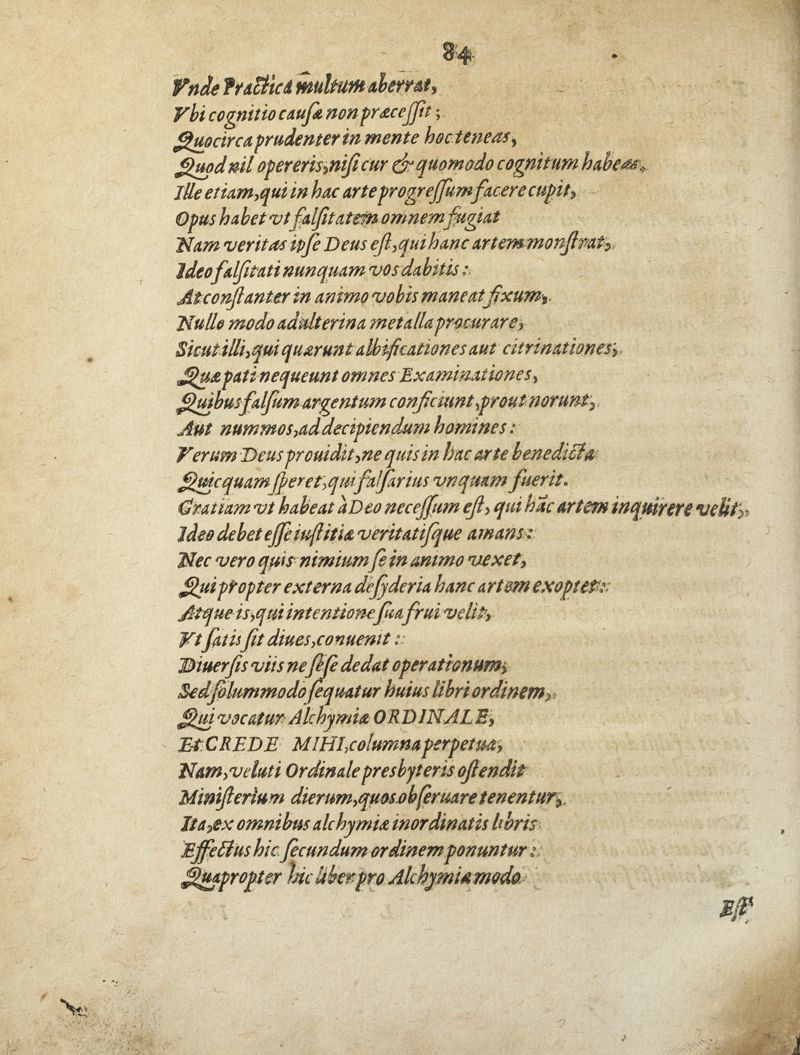 84
Vnde Practica multum aberrat,
Vbi cognitio causæ non præcessit;
Quocirca prudenter in mente hoc teneas,
Quod nil opereris, nisi cur & quomodo cognitum habeas.
Ille etiam, qui in hac arte progressum facere cupit,
Opus habet vt falsitatem omnem fugiat
Nam veritas ipse Deus est, qui hanc artem monstrat,
Ideo falsitati nunquam vos dabitis:
At constanter in animo vobis maneat fixum,
Nullo modo adulterina metalla procurare,
Sicut illi, qui quærunt albificationes aut citrinationes,
Quæ pati nequeunt omnes Examinationes,
Quibus falsum argentum conficiunt, prout norunt,
Aut nummos, ad decipiendum homines:
Verum Deus prouidit, ne quis in hac arte benedicta
Quicquam speret, qui falsarius vnquam fuerit.
Gratiam vt habeat à Deo necessum est, qui hāc artem inquirere velit,
Ideo debet esse iustitiæ veritatisque amans:
Nec vero quis nimium se in animo vexet,
Qui propter externa desyderia hanc artem exoptet:
Atque is, qui intentione sua frui velit,
Vt satis sit diues, conuenit:
Diuersis viis ne sese dedat operationum,
Sed solummodo sequatur huius libri ordinem,
Qui vocatur Alchymiæ ORDINALE,
Et CREDE MIHI, columna perpetua,
Nam, veluti Ordinale presbyteris ostendit
Ministerium dierum, quos obseruare tenentur,
Ita, ex omnibus alchymiæ inordinatis libris
Effectus hic secundum ordinem ponuntur:
Quapropter hic liber pro Alchymiæ modo
Est